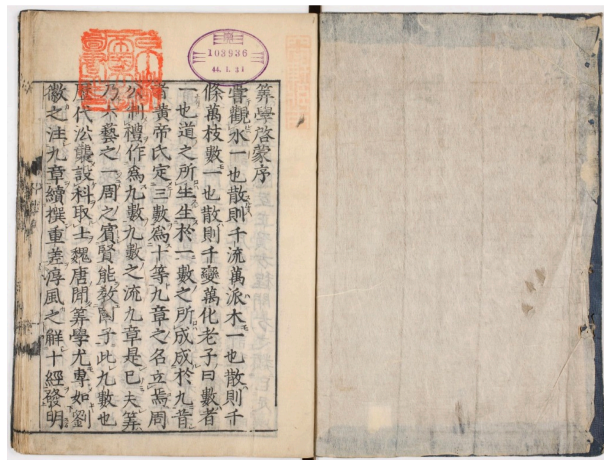 筭學啓蒙序
嘗觀水一也散則千流萬派木一也散則千
條萬枝數一也散則千變萬化老子曰數者
一也道之所生生於一數之所成成於九昔
者黃帝氏定三數爲十等九章之名立焉周
公制禮作爲九數九數之流九章是已夫筭
乃六藝之一周之賓賢能敎國子此九數也
歷代沿襲設科取士魏唐間筭學尤專如劉
徽之注九章續撰重差淳風之解十經發明
103936